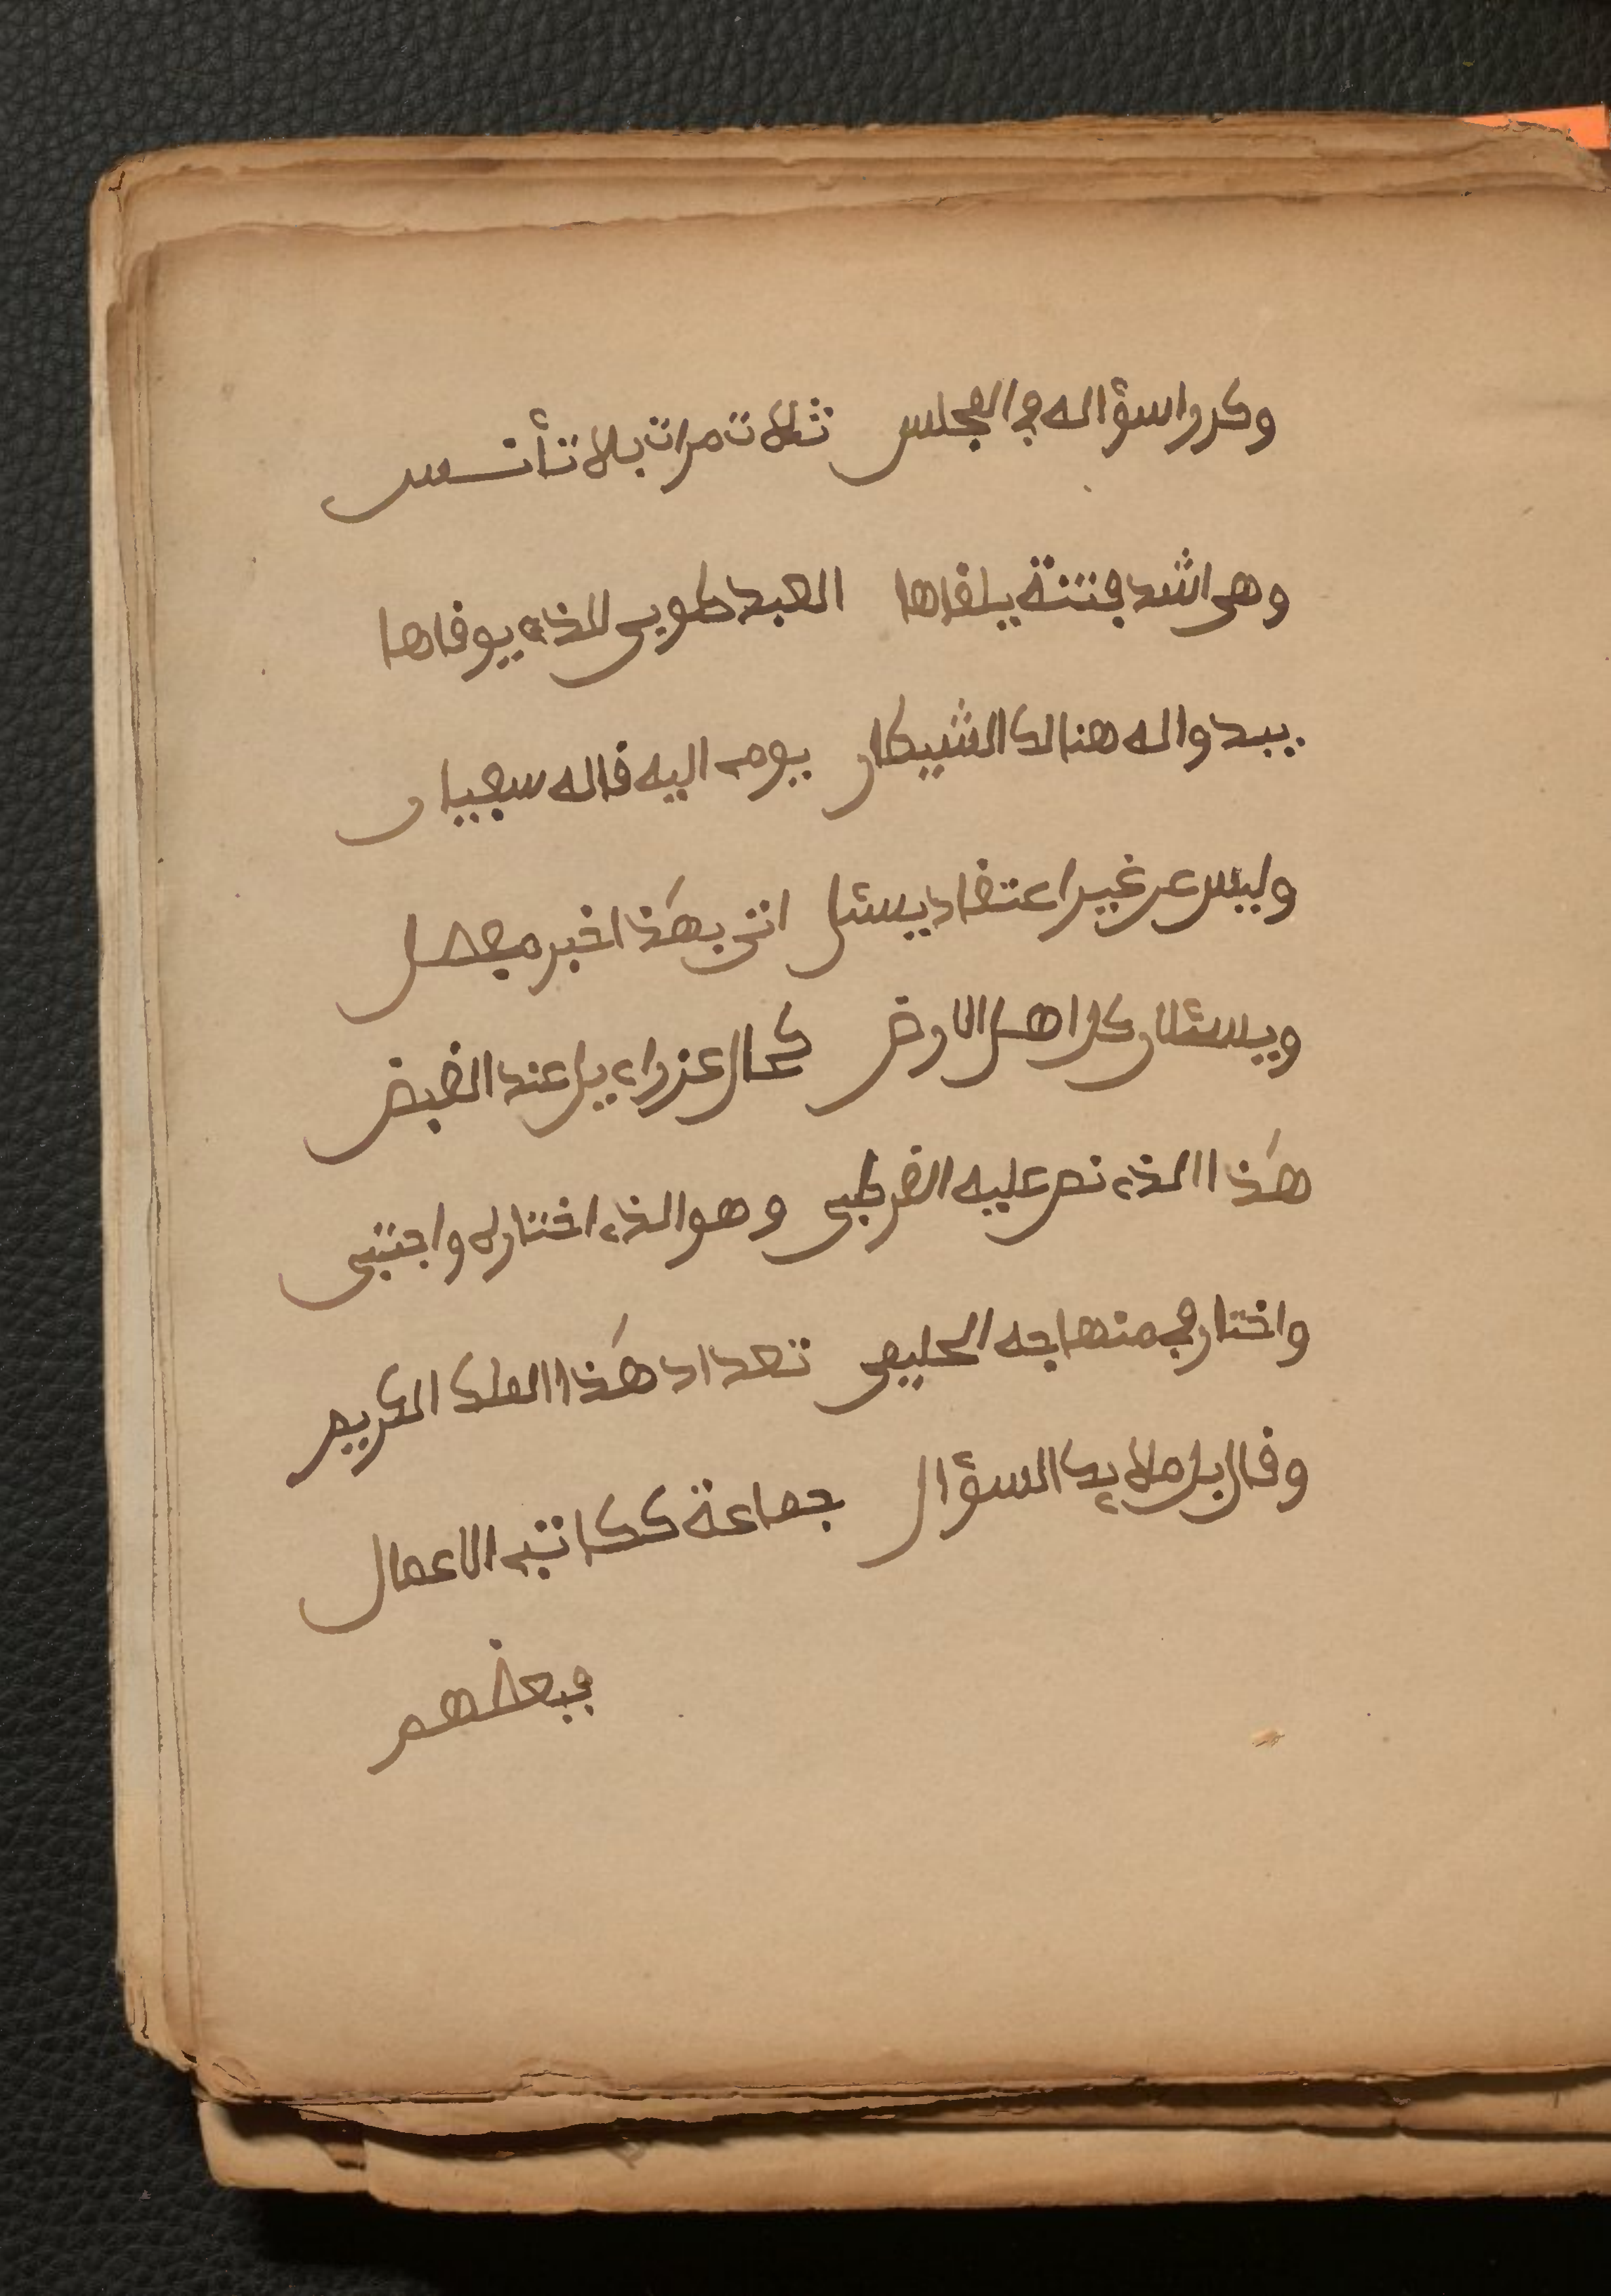 وكرروا سؤاله في المجلس ثلاث مرات بلا تأنس
وهى اشد فتنة يلقاها العبد طوبى للذي يوقاها
يبدوا له هنالك الشيطان يومي اليه قاله سفيان
وليس عن غير اعتقاد يسئل اتى بهذا خبر مفصل
ويسئلان كل اهل الارض كحال عزراءيل عند القبض
هذا الذي نص عليه القرطبى وهو الذي اختاره واجتبى
واختار في منهاجه الحليمى تعداد هذا الملك الكريم
وقال بل ملايك السؤال جماعة ككاتبي الاعمال
فبعضهم